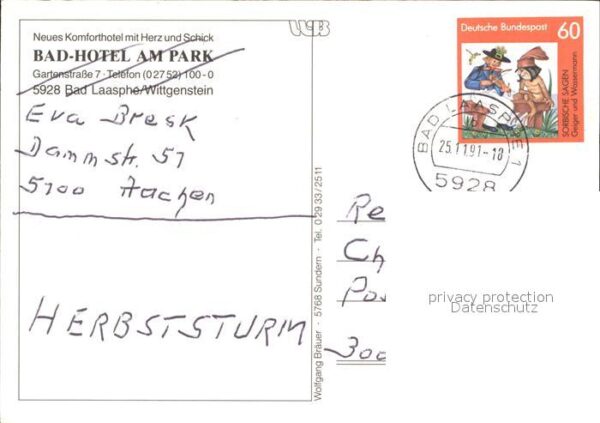 WB
Neues Komforthotel mit Herz und Schick
BAD-HOTEL AM PARK
Gartenstraße 7 · Telefon (0 27 52) 100-0
5928 Bad Laasphe/Wittgenstein
Eva Bresk
Dammstr. 57
5100 Aachen
HERBSTSTURM
Wolfgang Bräuer - 5768 Sundern - Tel. 0 29 33 / 25 11
Deutsche Bundespost 60
SORBISCHE SAGEN
Geiger und Wassermann
BAD LAASPHE 1
25.11.91-18
5928
Re
Ch
Pos
300
privacy protection
Datenschutz